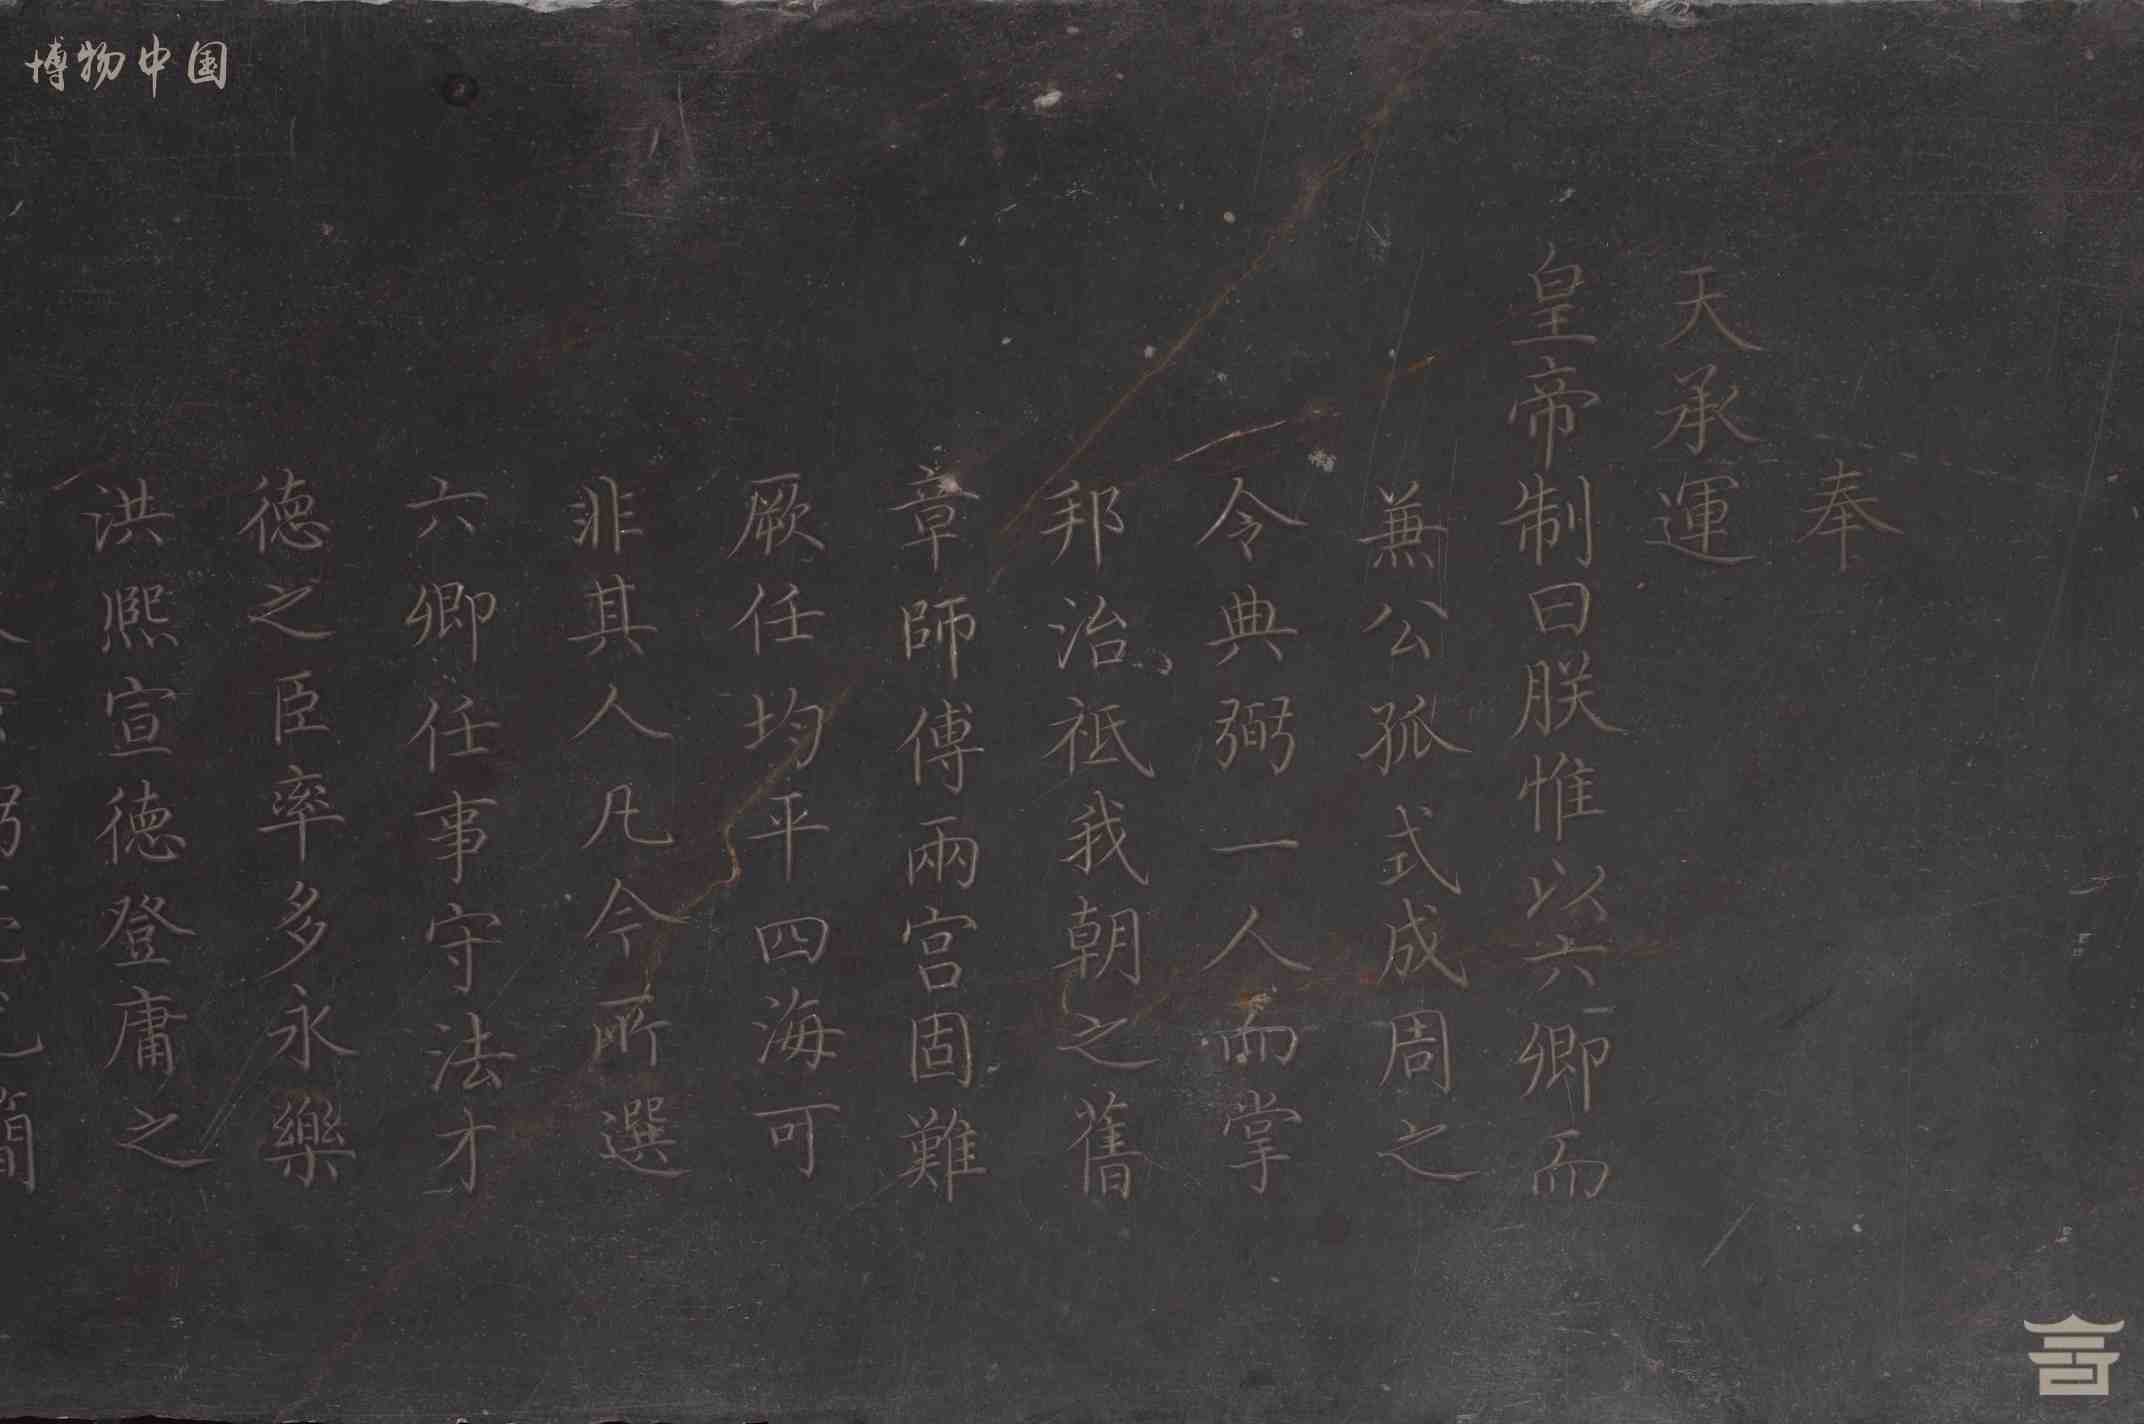 博物中国
奉
天承運
皇帝制曰朕惟以六卿而
兼公孤式成周之
令典弼一人而掌
邦治祗我朝之舊
章師傅兩宮固難
厥任均平四海可
非其人凡今所選
六卿任事守法才
德之臣率多永樂
洪熙宣德登庸之